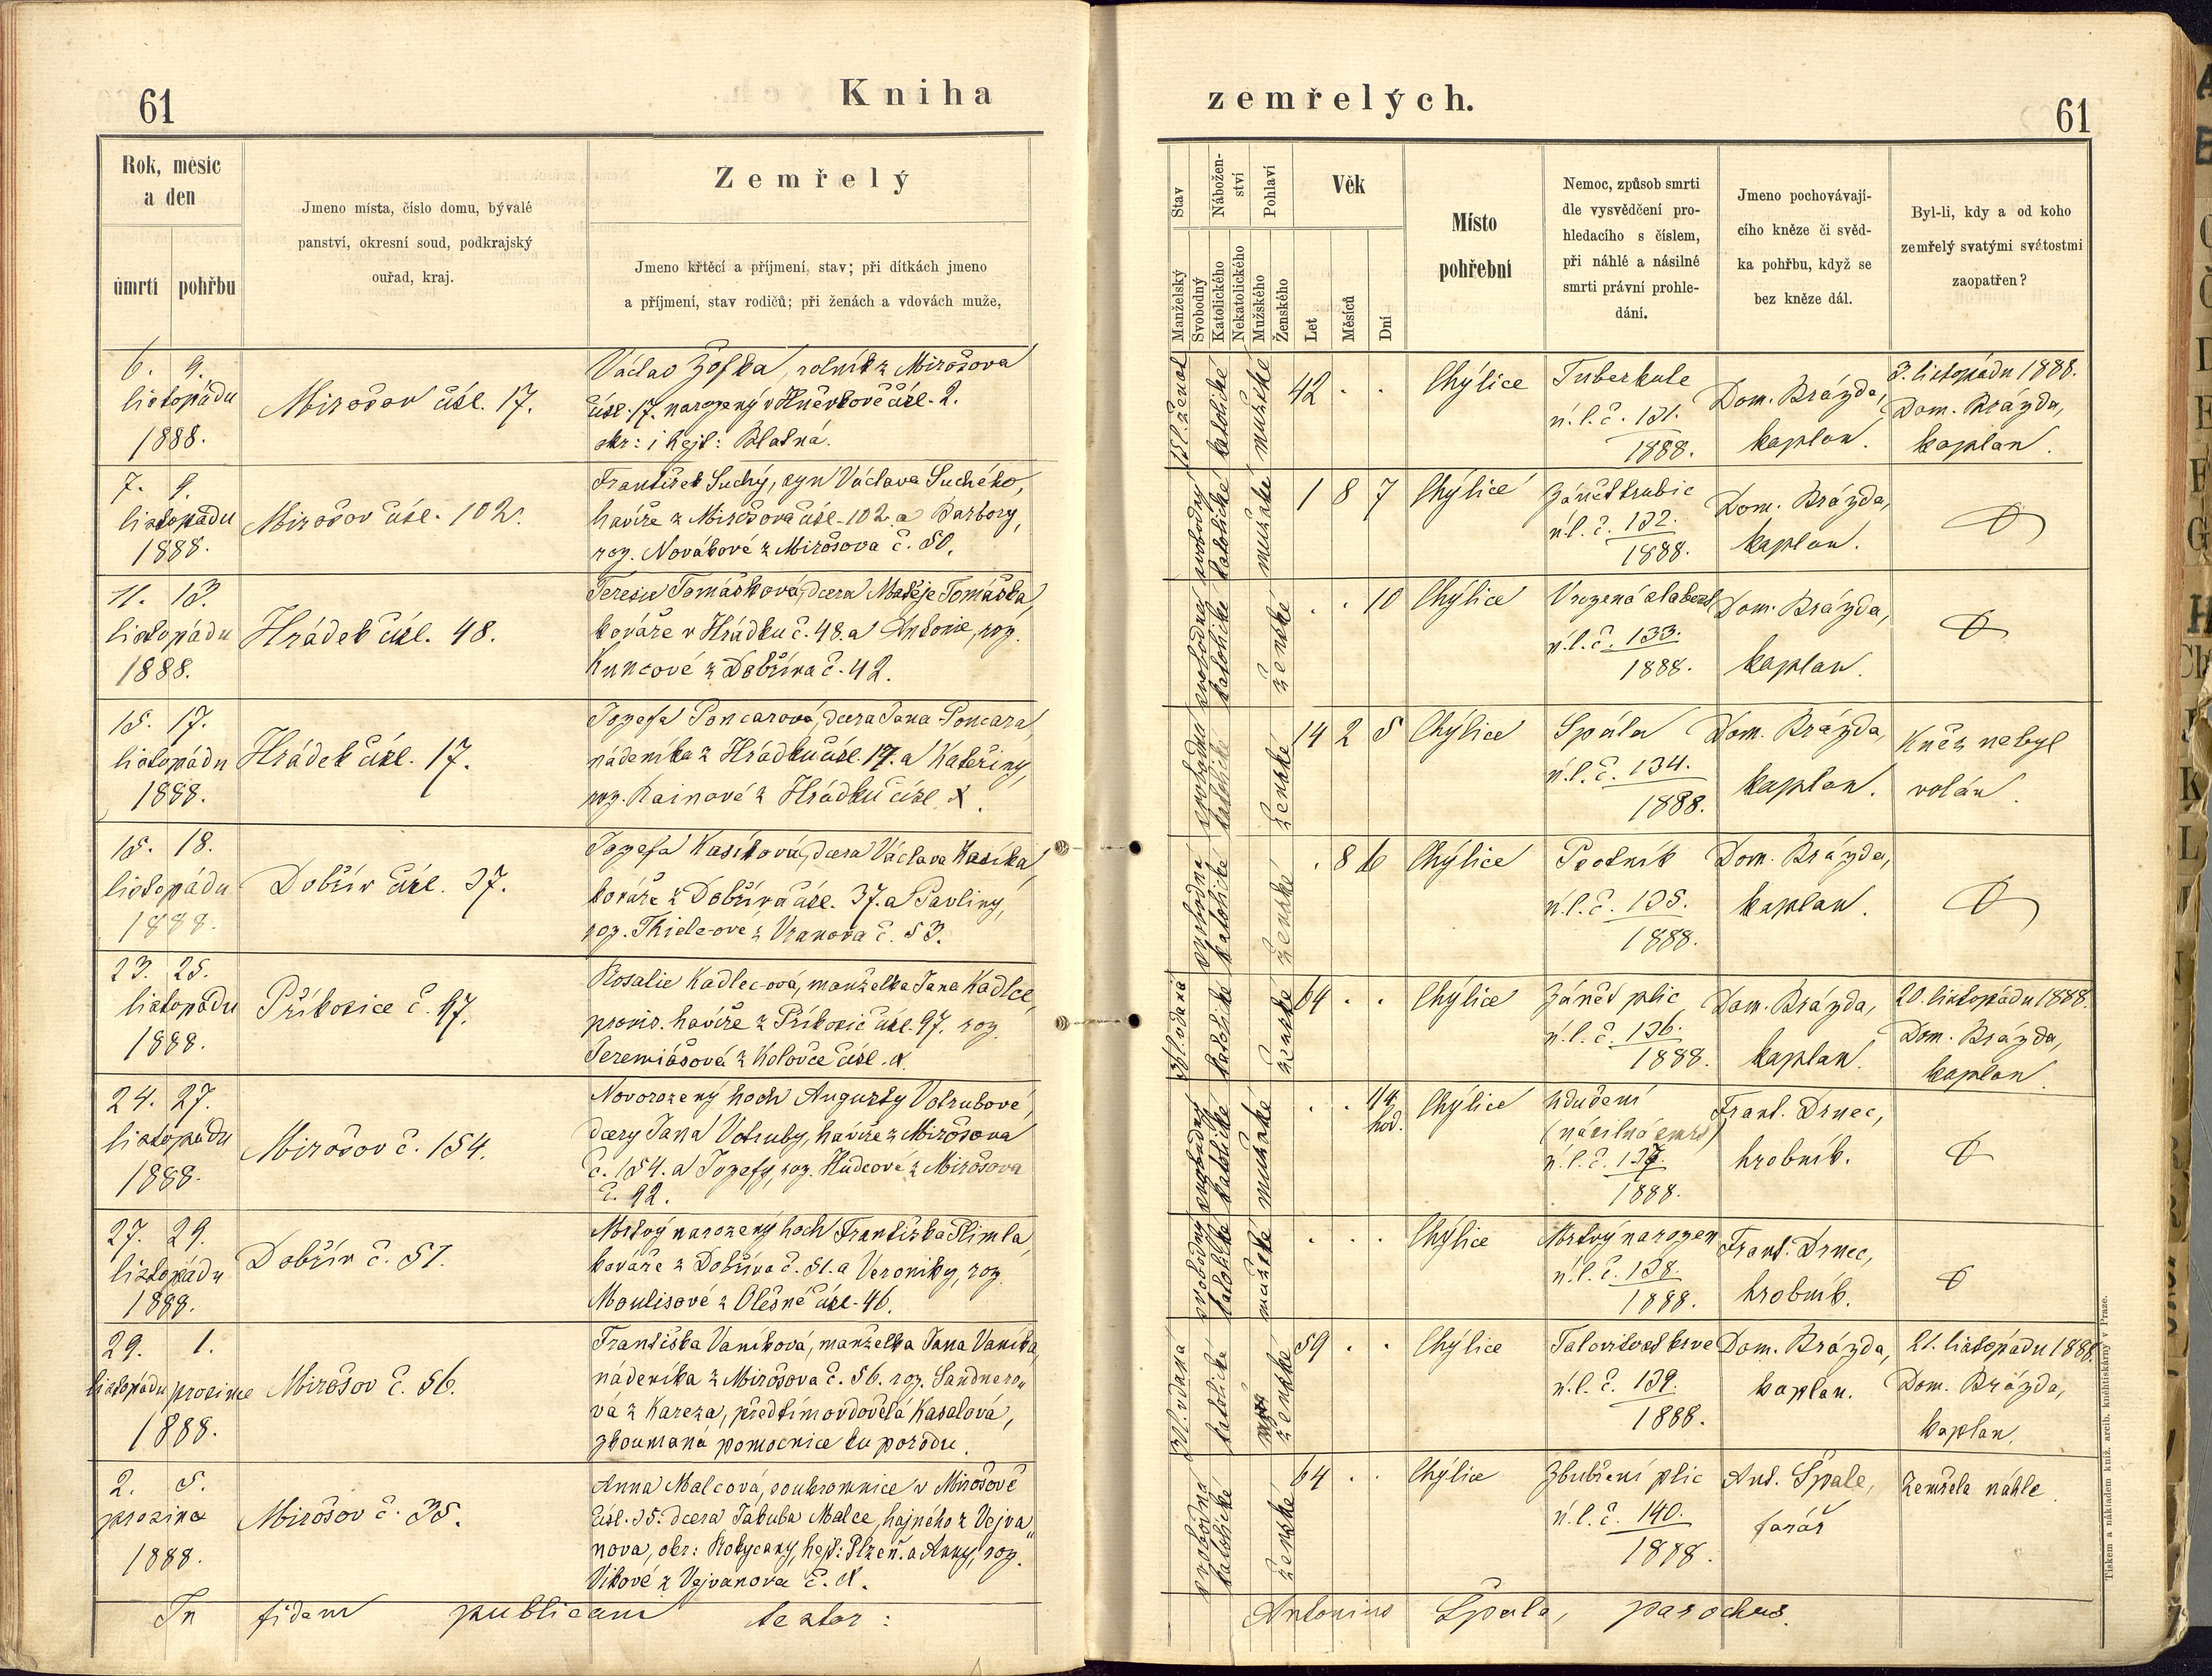 61
Kniha
Rok, měsíc
a den
úmrtí
pohřbu
Jmeno místa, číslo domu, bývalé
panství, okresní soud, podkrajský
ouřad, kraj.
Zemřelý
Jmeno křtěcí a příjmení, stav; při dítkách jmeno
a příjmení, stav rodičů; při ženách a vdovách muže,
6. 9.
listopadu
1888.
Mirošov čísl. 17.
Václav Žofka, rolník z Mirošova
čísl. 17. narozený v Hněvkově čísl. 2.
okr: i hejt: Blatná.
7. 9.
listopadu
1888.
Mirošov čísl. 102.
František Suchý, syn Václava Suchého,
havíře z Mirošova čísl. 102. a Barbory,
roz. Novákové z Mirošova č. 50.
11. 13.
listopadu
1888.
Hrádek čísl. 48.
Teresie Tomášková, dcera Matěje Tomáška,
kováře v Hrádku č. 48. a Antonie, roz.
Kuncové z Dobříva č. 42.
15. 17.
listopádu
1888.
Hrádek čísl. 17.
Jozefa Poncarová, dcera Jana Poncara,
nádeníka z Hrádku čísl. 17. a Kateřiny,
roz. Rainové z Hrádku čísl. X.
15. 18.
listopádu
1888.
Dobřív čísl. 37.
Jozefa Kasíková, dcera Václava Kasíka,
kováře z Dobříva čísl. 37. a Pavliny,
roz. Thiele-ové z Vranova č. 53.
23. 25.
listopadu
1888.
Příkosice č. 97.
Rosalie Kadlec-ová, manželka Jana Kadlce,
provis. havíře z Příkosic čísl. 97. roz.
Jeremiášová z Kolovče čísl. X.
24. 27.
listopadu
1888.
Mirošov č. 154.
Novorozený hoch Augusty Votrubové,
dcery Jana Votruby, havíře z Mirošova
č. 154. a Jozefy, roz. Hudcové z Mirošova
č. 92.
27. 29.
listopádu
1888.
Dobřív č. 51.
Mrtvý narozený hoch Františka Slimla,
kováře z Dobříva č. 51. a Veroniky, roz.
Moulisové z Olešné čísl. 46.
29. 1.
listopádu prosince
1888.
Mirošov č. 56.
Františka Vaníková, manželka Jana Vaníka,
nádeníka z Mirošova č. 56. roz. Sandnero„
vá z Kareza, předtím ovdovělá Kasalová,
zkoumaná pomocnice ku porodu.
2. 5.
prosince
1888.
Mirošov č. 35.
Anna Malcová, soukromnice v Mirošově
čísl. 35. dcera Jakuba Malce, hajného z Vejva„
nova, okr: Rokycany, hejt: Plzeň. a Anny, roz.
Vikové z Vejvanova č. X.
In fidem publicam testor:
zemřelých.
61
Stav
Manželský
Svobodný
Nábožen-
ství
Katolického
Nekatolického
Pohlaví
Mužského
Ženského
Věk
Let
Měsíců
Dní
Místo
pohřební
Nemoc, způsob smrti
dle vysvědčení pro-
hledacího s číslem,
při náhlé a násilné
smrti právní prohle-
dání.
Jmeno pochovávají-
cího kněze či svěd-
ka pohřbu, když se
bez kněze dál.
Byl-li, kdy a od koho
zemřelý svatými svátostmi
zaopatřen?
katolické
mužské
42 . .
Chýlice
Tuberkule
n. l. č. 131.
1888.
Dom. Brázda,
kaplan.
3. listopádu 1888.
Dom. Brázda,
kaplan.
svobodný
katolické
mužské
1 8 7
Chýlice
Zánět trubic
n. l. č. 132.
1888.
Dom. Brázda,
kaplan.
svobodná
katolické
ženské
. . 10
Chýlice
Vrozená slabost
n. l. č. 133.
1888.
Dom. Brázda,
kaplan.
svobodná
katolické
ženské
14 2 5
Chýlice
Spála
n. l. č. 134.
1888.
Dom. Brázda,
kaplan.
Kněz nebyl
volán.
svobodná
katolické
ženské
. 8 6
Chýlice
Psotník
n. l. č. 135.
1888.
Dom. Brázda,
kaplan.
katolické
ženské
64 . .
Chýlice
Zánět plic
n. l. č. 136.
1888.
Dom. Brázda,
kaplan.
20. listopádu 1888.
Dom. Brázda,
kaplan.
svobodný
katolické
mužské
. . 14 hod.
Chýlice
Udušení
(násilná smrt)
n. l. č. 137.
1888.
Frant. Drnec,
hrobník.
svobodný
katolické
mužské
. . .
Chýlice
Mrtvý narozen
n. l. č. 138.
1888.
Frant. Drnec,
hrobník.
katolické
ženské
59 . .
Chýlice
n. l. č. 139.
1888.
Dom. Brázda,
kaplan.
21. listopádu 1888.
Dom. Brázda,
kaplan.
svobodná
katolické
ženské
64 . .
Chýlice
Zbubření plic
n. l. č. 140.
1888.
Ant. Špale,
farář
Zemřela náhle
Antonius Špale, parochus.
Tiskem a nákladem kníž. arcib. knihtiskárny v Praze.